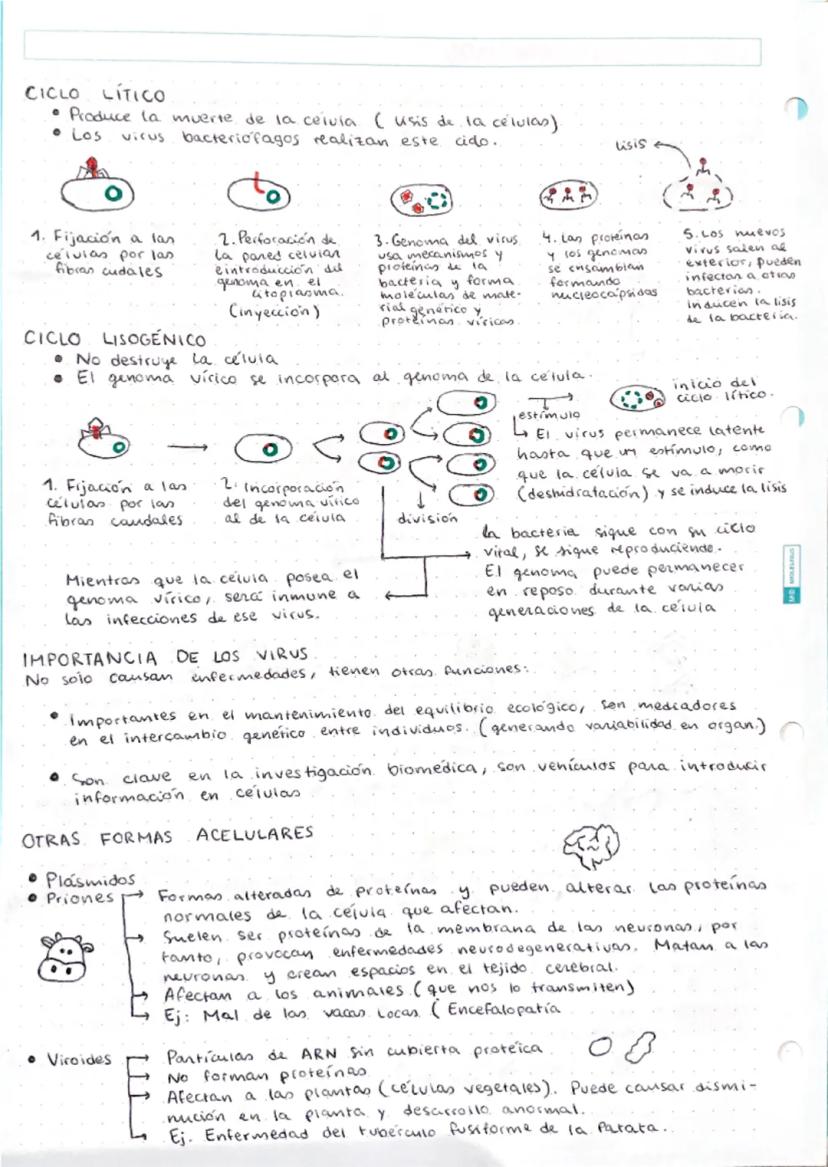 CICLO LÍTICO
• Produce la muerte de la célula (lisis de la células)
• Los virus bacteriófagos realizan este ciclo.
Lisis
1. Fijación a las
células por las
fibras cudales
2. Perforación de
la pared celular
e introducción del
genoma en el
citoplasma.
(inyección)
3. Genoma del virus
usa mecanismos y
proteínas de la
bacteria y forma
moléculas de mate-
rial genético y
proteínas víricas
4. Las proteínas
y los genomas
se ensamblan
formando
nucleocápsidas
5. Los nuevos
virus salen al
exterior, pueden
infectar a otras
bacterias.
Inducen la lisis
de la bacteria.
CICLO LISOGÉNICO
• No destruye la célula
• El genoma vírico se incorpora al genoma de la célula.
inicio del
ciclo lítico.
estímulo
El virus permanece latente
hasta que un estímulo, como
que la célula se va a morir
(deshidratación) y se induce la lisis
1. Fijación a las
células por las
fibras caudales
2. Incorporación
del genoma vírico
al de la célula
división
La bacteria sigue con su ciclo
vital, se sigue reproduciendo.
El genoma puede permanecer
en reposo durante varias
generaciones de la célula
Mientras que la célula posea el
genoma vírico, será inmune a
las infecciones de ese virus.
IMPORTANCIA DE LOS VIRUS
No solo causan enfermedades, tienen otras funciones:
• Importantes en el mantenimiento del equilibrio ecológico, son mediadores
en el intercambio genético entre individuos. (generando variabilidad en organ.)
• Son clave en la investigación biomédica, son vehículos para introducir
información en células
OTRAS FORMAS ACELULARES
• Plásmidos
• Priones → Formas alteradas de proteínas y pueden alterar las proteínas
normales de la célula que afectan.
→ Suelen ser proteínas de la membrana de las neuronas, por
tanto, provocan enfermedades neurodegenerativas. Matan a las
neuronas y crean espacios en el tejido cerebral.
→ Afectan a los animales (que nos lo transmiten)
→ Ej: Mal de las vacas locas (Encefalopatía
• Viroides → Partículas de ARN sin cubierta protéica
→ No forman proteínas
→ Afectan a las plantas (células vegetales). Puede causar dismi-
nución en la planta y desarrollo anormal.
→ Ej. Enfermedad del tubérculo fusiforme de la Patata.